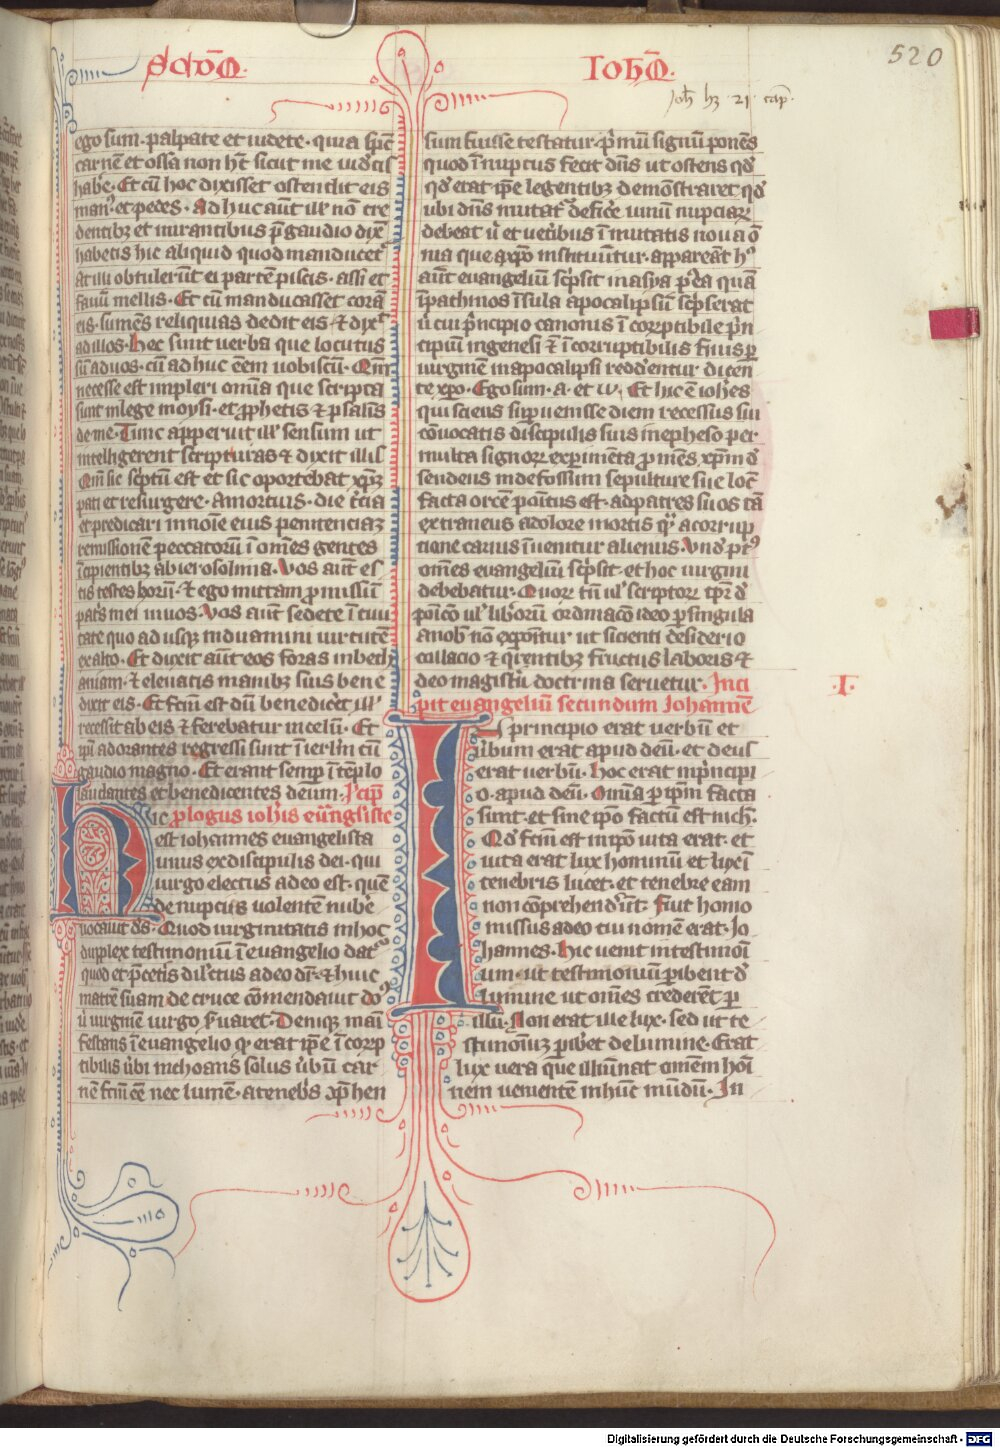 520
IohS
Joh hz 21 cap.
ego sum. palpate et uidete. quia spc
carnē et ossa non hт sicut me uidetis
habē. Et cū hoc dixisset ostendit eis
manꝰ et pedes. Adhuc aūt ill' nō cre
dentibꝫ et mirantibus p̄ gaudio dix̄
habetis hic aliquid quod manducetᷣ
At illi obtulerūt ei partē piscis. assi et
fauū mellis. Et cū manducasset corā
eis. sumēs reliquias dedit eis ⁊ dix̄
ad illos. Hec sunt uerba que locutus
sū ad uos. cū adhuc eēm uobiscū. Qm̄
necesse est impleri om̄ia que scripta
sunt in lege moysi. et ꝓphetis ⁊ psalīs
de me. Tunc apperuit ill' sensum ut
intelligerent scripturas ⁊ dixit illis
Qm̄ sic sc̄ptū est et sic oportebat xp̄m
pati et resurgere. a mortuis. die t̄cia
et predicari in noīe eius penitenciaꝫ
remissionē peccatorū ī om̄es gentes
īcipientibꝫ ab ierosolima. Vos aūt es
tis testes horū. ⁊ ego mittam ꝓmissū
pat̄s mei in uos. Vos aūt sedete ī ciui
tate quo ad usqꝫ induamini uirtutē
ex alto. Et dixit aūt eos foras in beth
aniam. ⁊ eleuatis manibꝫ suis bene
dixit eis. Et fc̄m est dū bendic̄et ill'
recessit ab eis ⁊ ferebatur in celū. Et
ip̄i adorantes regressi sunt ī ierl̄m cū
gaudio magno. Et erant semꝑ ī tēplo
laudantes et benedicentes deum. Īcip̄
Hic ꝓlogus ioh̄is eūngliste
est iohannes euangelista
unus ex discipulis dei. qui
uirgo electus a deo est. quē
de nupciis uolentē nub̄e
uocauit dꝰs. Quod uirginitatis in hoc
dupplex testimoniū ī euangelio datᷣ
quod et p̄ ceт̄is dil'ctus a deo dꝛ. ⁊ huic
matrē suam de cruce cōmendauit dō
ū uirginē uirgo s̄uaret. Denique māi
festans ī euangelio qͥ erat ip̄e ī corꝛp
tibilis ū̄bi inchoans solus ū̄bū car
nē fc̄m eē nec lumē. a teneb̄s ꝯp̄hen
sum fuisse testatur. p̄mū signū ponēs
quod ī nupciis fecit dn̄s ut ostens qd̄
qd̄ erat ip̄e legentibꝫ demōstraret qd̄
ubi dn̄s inuitatᷣ defic̄e uinū nupciaꝝ
debeat ū et uet̄ibus īmutatis noua ō
nia que a xp̄o instituūtur. appareāt hͦ
aūt euangeliū sc̄psit in asya p̄ ea quā
ī pathmos īsula apocalipsim sc̄pserat
ū cui p̄ncipio canonis ī corꝛptibile p̄n
cipiū in genesi ⁊ ī corruptibilis finis ꝑ
uirginē in apocalipsi redd'entur dicen
te xp̄o. Ego sum. a. et ω. Et hic ē ioh̄es
qui sciens suꝑuenisse diem recessus sui
cōuocatis discipulis suis in epheso per
multa signoꝝ exꝑimēta ꝓmēs xp̄m d'
sendens in defossum sepulture sue locū
facta or̄cē positus est. ad patres suos tā
extraneus a dolore mortis qͣꝫ a corrup
tione carnis īuenitur alienus. Vnd' pꝰt
om̄es euangeliū sc̄psit. et hoc uirgini
debebatur. Quoꝝ tn̄ ul' scriptoꝝ tp̄r d'
poīcō ul' librorum ordinacō ideo ꝑ singula
a nob̄ nō exponitur ut scienti desiderio
collacio ⁊ querentibꝫ fructus laboris ⁊
deo magistīi doctrina seruetur. Inci
pit euangeliū secundum Iohannē
.I.
In principio erat uerbū et
ū̄bum erat apud deū. et deus
erat uerbū. Hoc erat in p̄ncipi
o. apud deū. Om̄ia ꝑ ip̄m facta
sunt. et sine ip̄o factū est nich̄.
Qd̄ fc̄m est in ip̄o uita erat. et
uita erat lux hominū et lux ī
tenebris lucet. et tenebre eam
non cōprehend'ūt. Fuit homo
missus a deo cui nomē erat. Jo
hannes. Hic uenit in testimoī
um. ut testimoniū ꝑibent d'
lumine ut om̄es crēderēt ꝑ
illū. Non erat ille lux. sed ut te
stimoniūꝫ ꝑib̄et de lumine. Erat
lux uera que illuīnat omēm hoī
nem uenientē in hūc mūdū. In
Digitalisierung gefördert durch die Deutsche Forschungsgemeinschaft - DFG